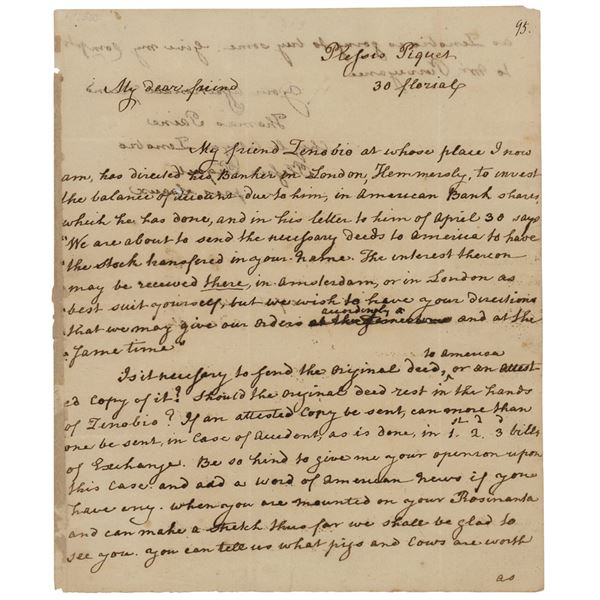 95.
Plessis Piquet
30 florial
My dear friend
My friend Zenobio at whose place I now
am, has directed his Banker in London, Hemmersly, to invest
the balance of account due to him, in American Bank shares,
which he has done, and in his letter to him of April 30 says
"We are about to send the necessary deeds to America to have
"the stock transfered in your name. The interest thereon
may be received there, in Amsterdam, or in London as
best suit yourself, but we wish to have your directions
accordingly
"that we may give our orders at the same time and at the
"same time"
to america
Is it necessary to send the original deed, or an attest
ed Copy of it? Should the original deed rest in the hands
of Zenobio? If an attested Copy be sent, can more than
one be sent, in Case of accident, as is done, in 1st. 2d. 3d bills
of Exchange. Be so kind to give me your openion upon
this case. and add a word of American news if you
have eny. when you are mounted on your Rosinanta
and can make a stretch thus far we shall be glad to
see you. you can tell us what pigs and Cows are worth
as
as Zenobio is going to buy some. Give my Comp
to Mr
Thomas Paine
Zenobio